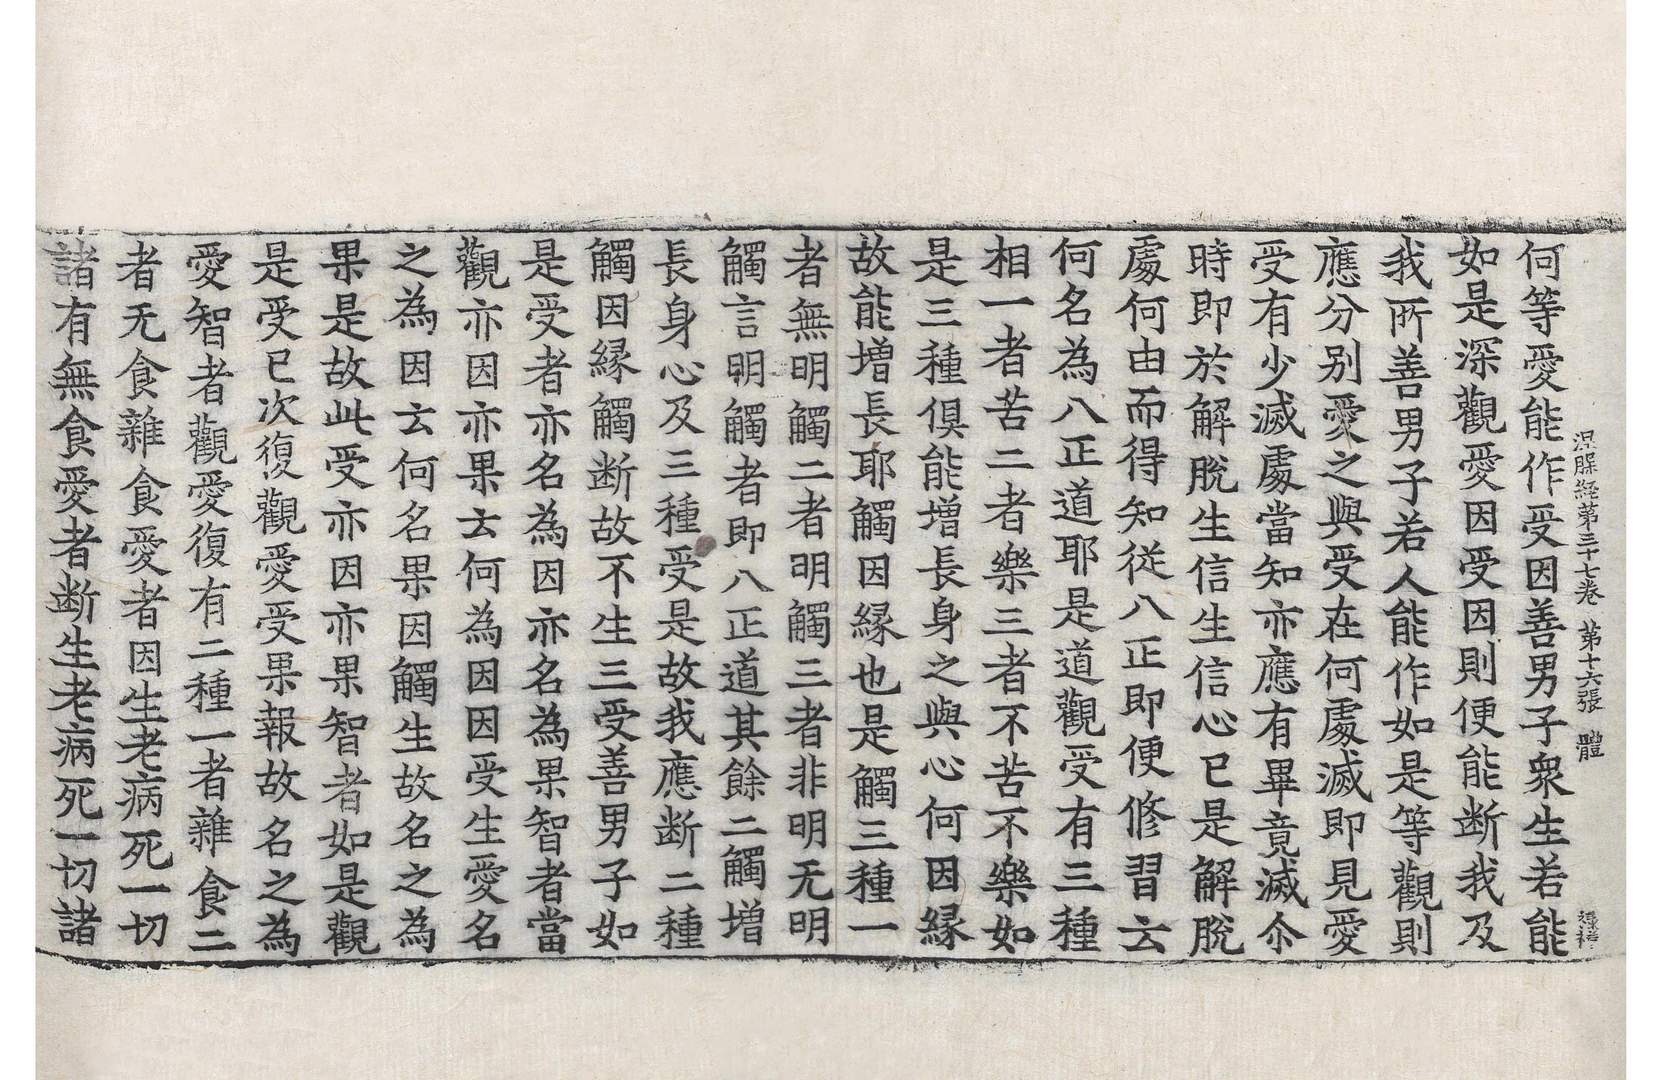 涅槃経第三十七卷 第十六張 體
何等愛能作受因善男子衆生若能
如是深觀愛因受因則便能断我及
我所善男子若人能作如是等觀則
應分别愛之與受在何處滅即見愛
受有少滅處當知亦應有畢竟滅尒
時即於解脫生信生信心已是解脫
處何由而得知從八正即便修習云
何名為八正道耶是道觀受有三種
相一者苦二者樂三者不苦不樂如
是三種俱能增長身之與心何因縁
故能增長耶觸因縁也是觸三種一
者無明觸二者明觸三者非明无明
觸言明觸者即八正道其餘二觸増
長身心及三種受是故我應断二種
觸因縁觸断故不生三受善男子如
是受者亦名為因亦名為果智者當
觀亦因亦果云何為因因受生愛名
之為因云何名果因觸生故名之為
果是故此受亦因亦果智者如是觀
是受已次復觀愛受果報故名之為
愛智者觀愛復有二種一者雜食二
者无食雜食愛者因生老病死一切
諸有無食愛者断生老病死一切諸